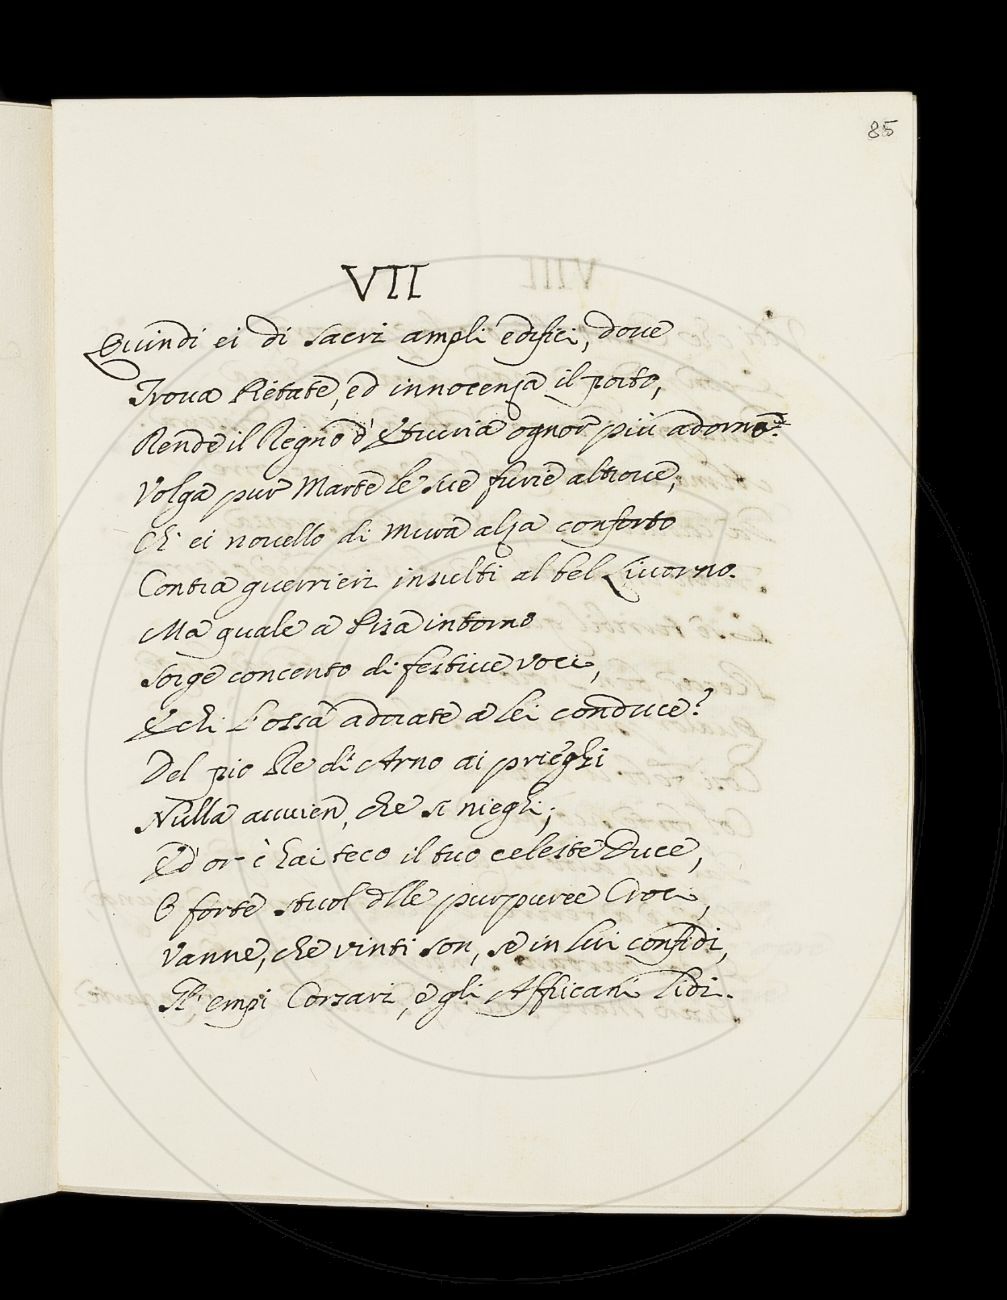 85
VII
Quindi ei di sacri ampli edifici, doue
Troua Pietate, ed innocenza il porto,
Rende il Regno d'Etruria ognor più adorno:
Volga pur Marte le sue furie altroue,
Ch'ei nouello di Mura alza conforto
Contra guerrieri insulti al bel Liuorno.
Ma quale a Pisa intorno
Sorge concento di festiue voci,
E chi l'ossa adorate a lei conduce?
Del pio Re di Arno ai prieghi
Nulla auuien, che si nieghi;
Ed or' è hai teco il tuo celeste Duce,
O forte stuol dlle purpuree Croci,
Vanne, che vinti son, se in lui confidi,
Gl'empi Corsari, e gli Affricani lidi.